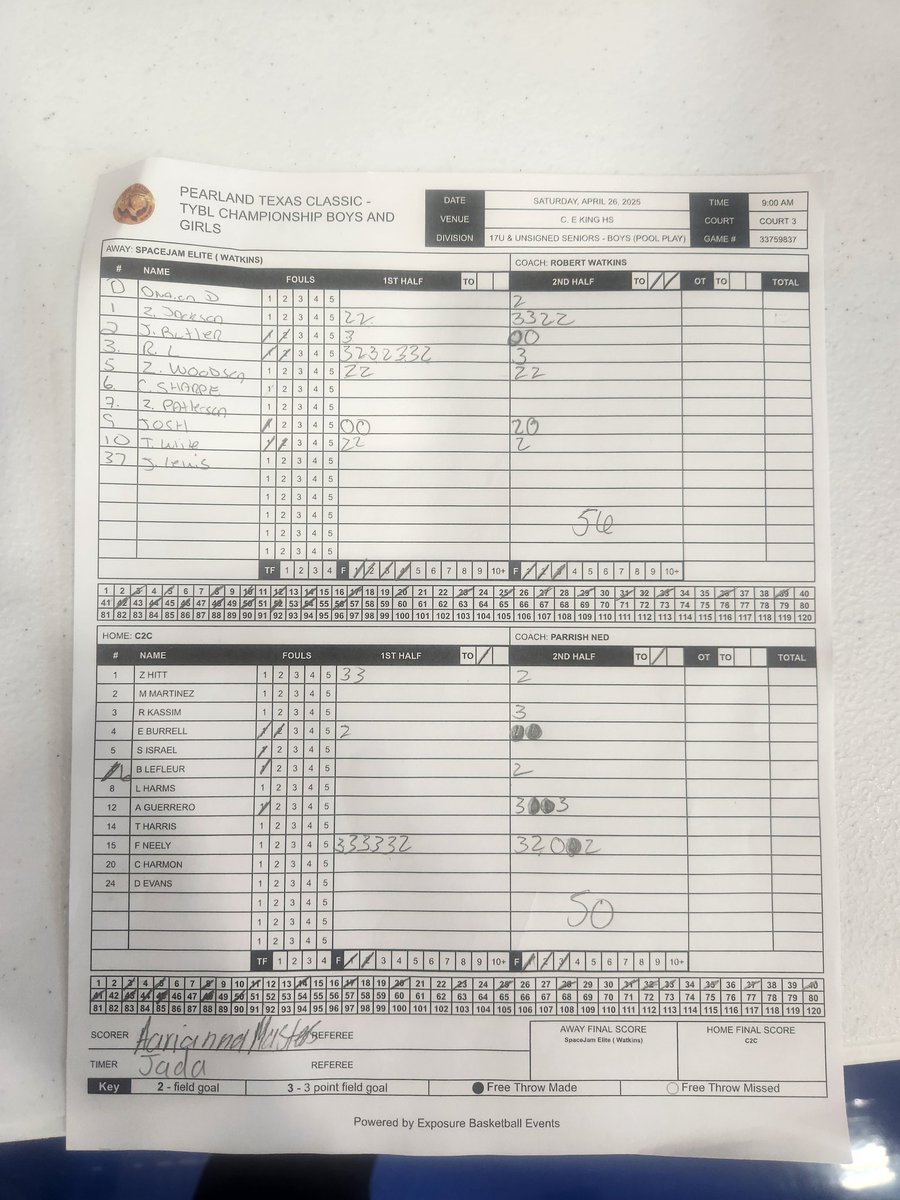 PEARLAND TEXAS CLASSIC -
TYBL CHAMPIONSHIP BOYS AND
GIRLS
DATE SATURDAY, APRIL 26, 2025 TIME 9:00 AM
VENUE C. E KING HS COURT COURT 3
DIVISION 17U & UNSIGNED SENIORS - BOYS (POOL PLAY) GAME # 33759837
AWAY: SPACEJAM ELITE ( WATKINS) COACH: ROBERT WATKINS
# NAME FOULS 1ST HALF TO 2ND HALF TO OT TO TOTAL
0 D 1 2 3 4 5 2
1 Z. Jackson 1 2 3 4 5 22 3322
2 J. Butler 1 2 3 4 5 3 00
3. R. L 1 2 3 4 5 3232332 3
5 Z. WOODSON 1 2 3 4 5 22 22
6 C. SHARPE 1 2 3 4 5
7. Z. Patterson 1 2 3 4 5
9 JOSH 1 2 3 4 5 00 20
10 T. 1 2 3 4 5 22 2
37 J. Lewis 1 2 3 4 5
1 2 3 4 5
1 2 3 4 5
1 2 3 4 5 56
1 2 3 4 5
1 2 3 4 5
TF 1 2 3 4 F 1 2 3 4 5 6 7 8 9 10+ F 1 2 3 4 5 6 7 8 9 10+
1 2 3 4 5 6 7 8 9 10 11 12 13 14 15 16 17 18 19 20 21 22 23 24 25 26 27 28 29 30 31 32 33 34 35 36 37 38 39 40
41 42 43 44 45 46 47 48 49 50 51 52 53 54 55 56 57 58 59 60 61 62 63 64 65 66 67 68 69 70 71 72 73 74 75 76 77 78 79 80
81 82 83 84 85 86 87 88 89 90 91 92 93 94 95 96 97 98 99 100 101 102 103 104 105 106 107 108 109 110 111 112 113 114 115 116 117 118 119 120
HOME: C2C COACH: PARRISH NED
# NAME FOULS 1ST HALF TO 2ND HALF TO OT TO TOTAL
1 Z HITT 1 2 3 4 5 33 2
2 M MARTINEZ 1 2 3 4 5
3 R KASSIM 1 2 3 4 5 3
4 E BURRELL 1 2 3 4 5 2
5 S ISRAEL 1 2 3 4 5
6 B LEFLEUR 1 2 3 4 5 2
8 L HARMS 1 2 3 4 5
12 A GUERRERO 1 2 3 4 5 3003
14 T HARRIS 1 2 3 4 5
15 F NEELY 1 2 3 4 5 333332 32002
20 C HARMON 1 2 3 4 5
24 D EVANS 1 2 3 4 5
1 2 3 4 5 50
1 2 3 4 5
1 2 3 4 5
TF 1 2 3 4 F 1 2 3 4 5 6 7 8 9 10+ F 1 2 3 4 5 6 7 8 9 10+
1 2 3 4 5 6 7 8 9 10 11 12 13 14 15 16 17 18 19 20 21 22 23 24 25 26 27 28 29 30 31 32 33 34 35 36 37 38 39 40
41 42 43 44 45 46 47 48 49 50 51 52 53 54 55 56 57 58 59 60 61 62 63 64 65 66 67 68 69 70 71 72 73 74 75 76 77 78 79 80
81 82 83 84 85 86 87 88 89 90 91 92 93 94 95 96 97 98 99 100 101 102 103 104 105 106 107 108 109 110 111 112 113 114 115 116 117 118 119 120
SCORER Aarianna Masters REFEREE
TIMER Jada REFEREE
AWAY FINAL SCORE HOME FINAL SCORE
SpaceJam Elite ( Watkins) C2C
Key 2 - field goal 3 - 3 point field goal Free Throw Made Free Throw Missed
Powered by Exposure Basketball Events